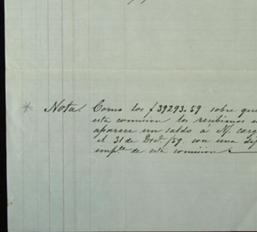 * Nota Como los $39293.59 sobre que
esta comision los recibimos en
aparece un saldo a N/ cargo
el 31 de Dre/59 con una
de esta comision